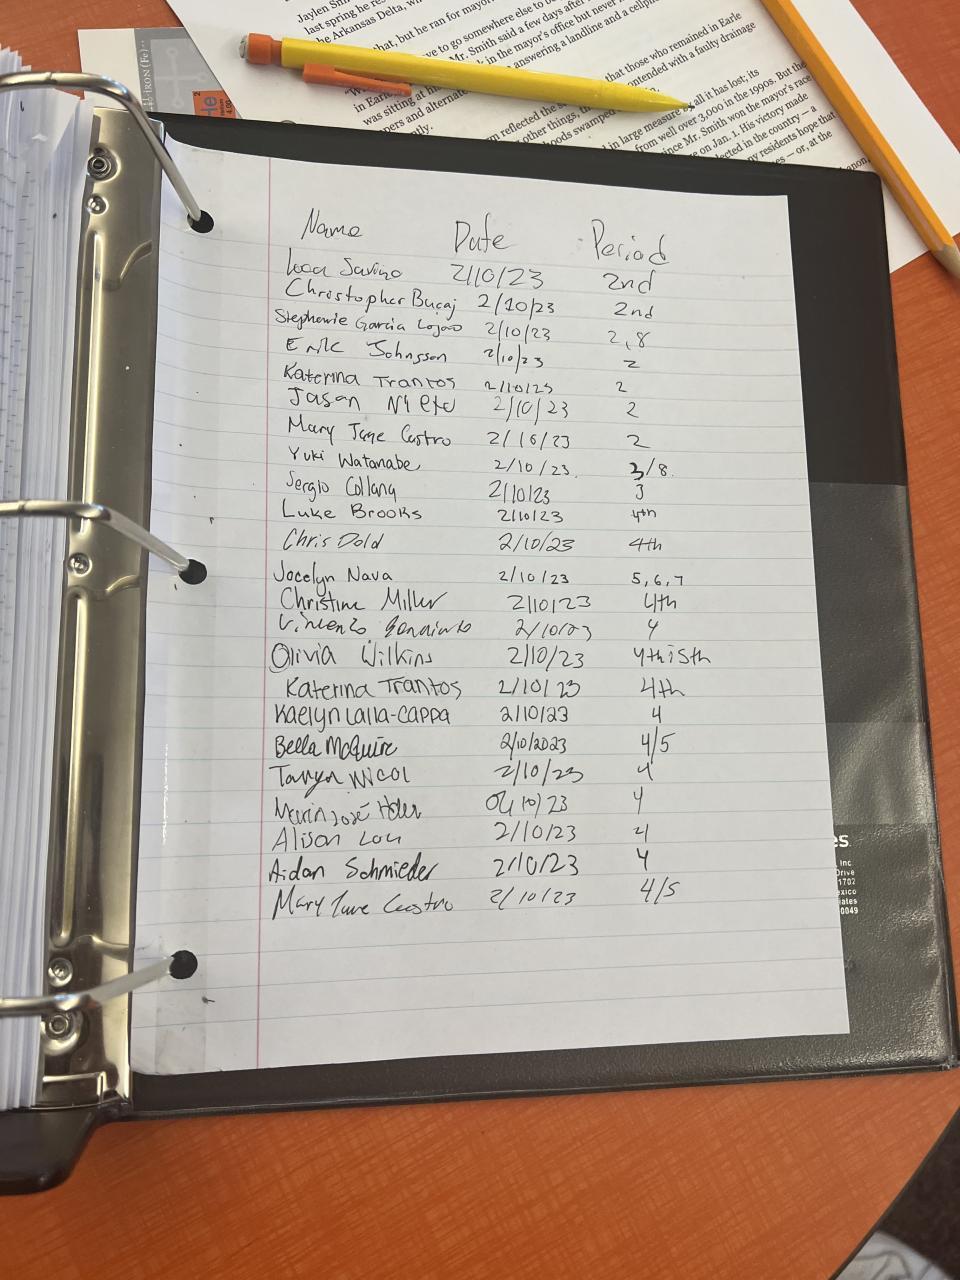 Jaylen Smi
last spring he res
he Arkansas Delta, wh
that, but he ran for mayor
ve to go somewhere else to be
Mr. Smith said a few days after
in Earle
k in the mayor's office but never
was sitting at his
answering a landline and a cellph
pers and alternate
that those who remained in Earle
ntended with a faulty drainage
m reflected the s
other things, th
oods swamped
in large measure by all it has lost; its
from well over 3,000 in the 1990s. But the
ince Mr. Smith won the mayor's race
e on Jan. 1. His victory made
lected in the country — a
ny residents hope that
es — or, at the
IRON (Fe)
He 2
4.00
Name Date Period
Luca Savino 2/10/23 2nd
Christopher Bucaj 2/10/23 2nd
Stephanie Garcia 2/10/23 2,8
Erik Johnsson 2/10/23 2
Katerina Trantos 2/10/23 2
Jason Nieto 2/10/23 2
Mary Jane Castro 2/10/23 2
Yuki Watanabe 2/10/23 3/8
Sergio 2/10/23 3
Luke Brooks 2/10/23 4th
Chris Dold 2/10/23 4th
Jocelyn Nava 2/10/23 5,6,7
Christine Miller 2/10/23 4th
Vincenzo 2/10/23 4
Olivia Wilkins 2/10/23 4th 5th
Katerina Trantos 2/10/23 4th
Kaelyn Lalla-Cappa 2/10/23 4
Bella McGuire 2/10/2023 4/5
Taryn Nicol 2/10/23 4
José 10/23 4
Alison 2/10/23 4
Aidan Schmieder 2/10/23 4
Mary Jane Castro 2/10/23 4/5
es
Inc
Drive
1702
exico
iates
0049